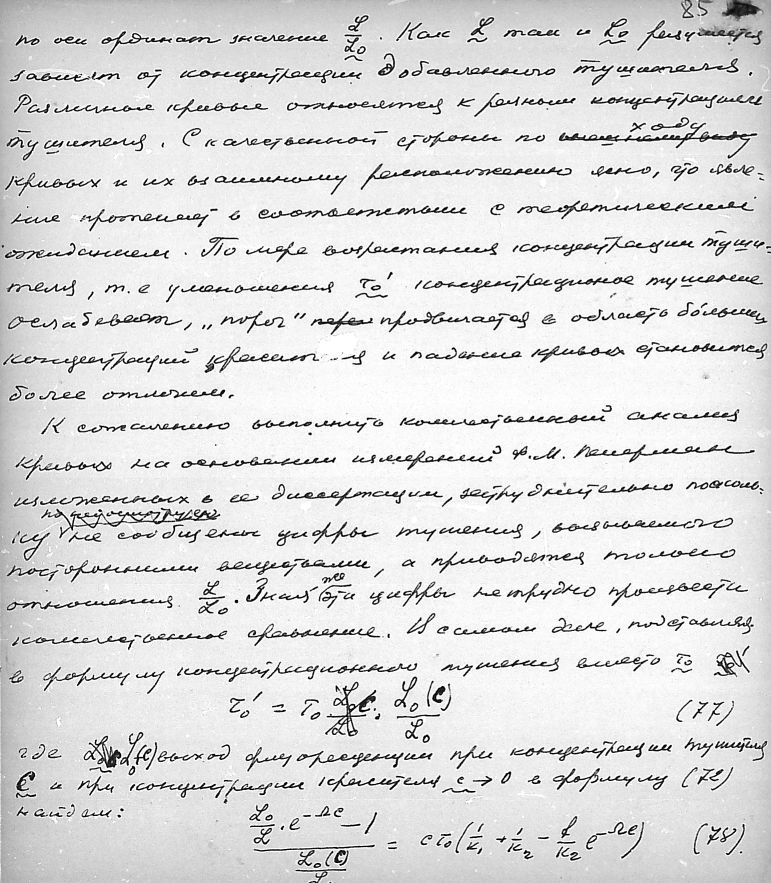 85
по оси ординат значение L/L₀. Как L так и L₀ разумеется
зависят от концентрации добавленного тушителя.
Различные кривые относятся к разным концентрациям
тушителя. С качественной стороны по ходу
кривых и их взаимному расположению ясно, что явле-
ние протекает в соответствии с теоретическим
ожиданием. По мере возрастания концентрации туши-
теля, т.е уменьшения τ₀′ концентрационное тушение
ослабевает, „порог“ продвигается в область бо́льших
концентраций красителя и падение кривых становится
более отлогим.
К сожалению выполнить количественный анализ
кривых на основании измерений Ф.М. Пекерман
изложенных в ее диссертации, затруднительно посколь-
ку не сообщены цифры тушения, вызываемого
посторонними веществами, а приводятся только
отношения L/L₀. Зная же эти цифры нетрудно произвести
количественное сравнение. В самом деле, подставляя
в формулу концентрационного тушения вместо τ₀
τ₀′ = τ₀ L₀(C)/L₀ (77)
где L₀(C) выход флуоресценции при концентрации тушителя
C и при концентрации красителя c → 0 в формулу (72)
найдем:
(L₀/L · e^(−Ωc) − 1) / (L₀(C)/L₀) = cτ₀(1/κ₁ + 1/κ₂ − f/κ₂ e^(−Ωc)) (78).